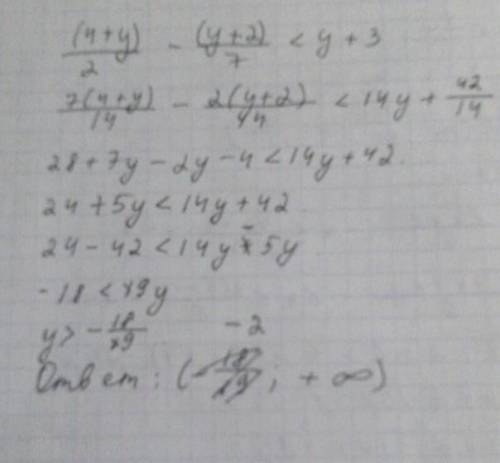 (4+y)/2 - (y+2)/7 < y + 3
7(4+y)/14 - 2(y+2)/14 < 14y + 42/14
28 + 7y - 2y - 4 < 14y + 42.
24 + 5y < 14y + 42
24 - 42 < 14y - 5y
-18 < 9y
y > - 18/9 - 2
Ответ: ( ; + ∞)